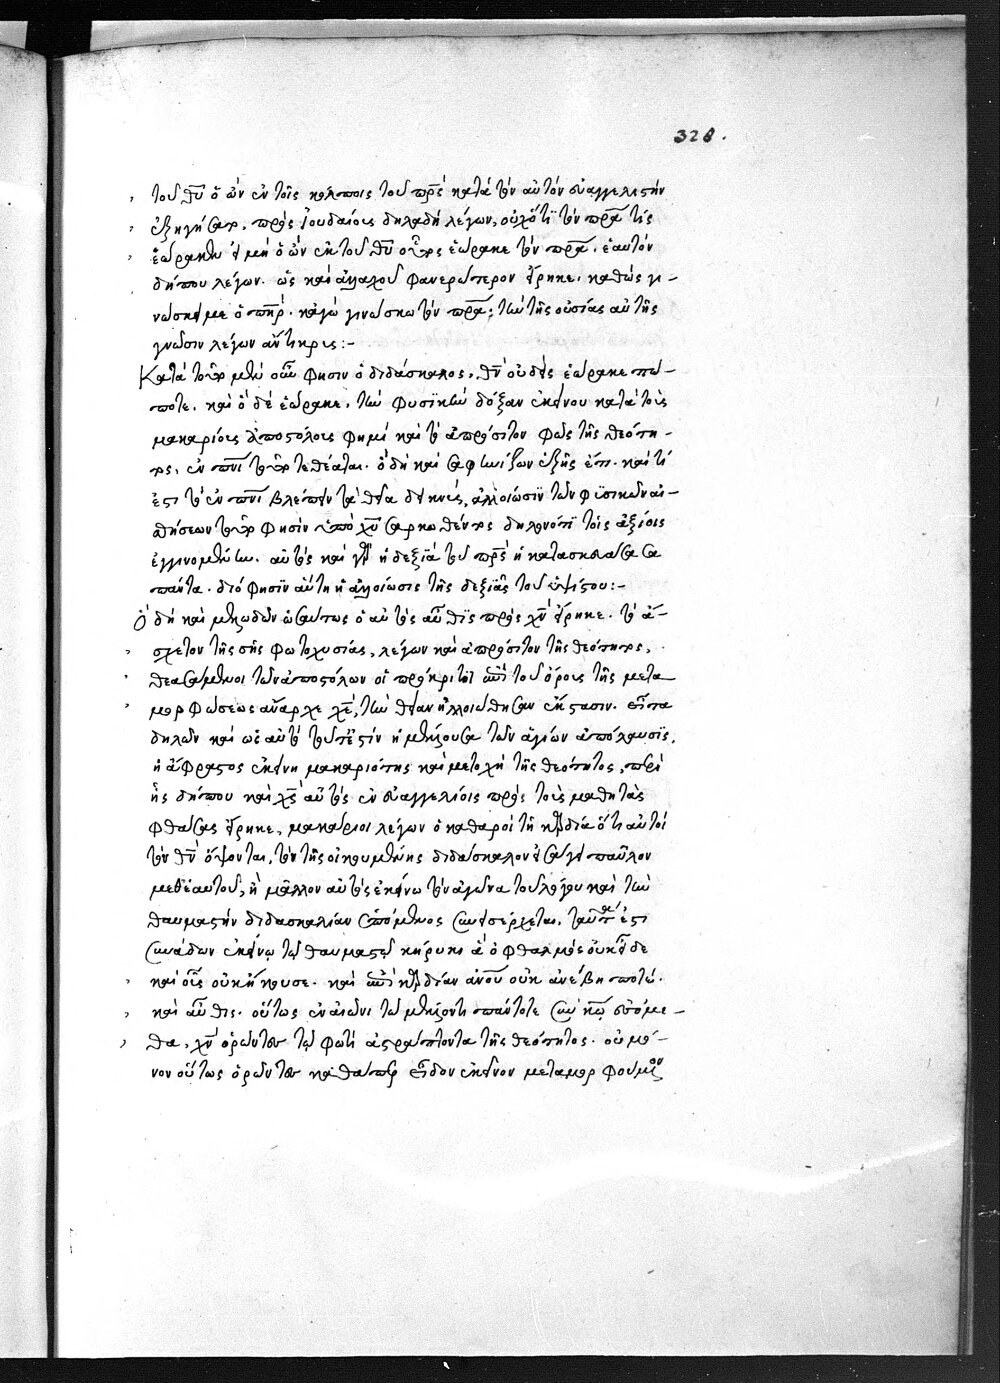 328.
τοῦ θῦ ὁ ὢν ἐν τοῖς κόλποις τοῦ πρς κατὰ τὸν αὐτὸν εὐαγγελιστὴν
ἐξηγήσατο. πρὸς ἰουδαίους δηλαδὴ λέγων, οὐχ ὅτι τὸν πρα τίς
ἑώρακεν εἰ μὴ ὁ ὢν ἐκ τοῦ θῦ οὗτος ἑώρακε τὸν πρα. ἑαυτὸν
δήπου λέγων. ὡς καὶ ἀλλαχοῦ φανερώτερον εἴρηκε. καθὼς γι-
νώσκει με ὁ πηρ. κἀγὼ γινώσκω τὸν πρα; τὴν τῆς οὐσίας αὐτῆς
γνῶσιν λέγων ἄντικρις:-
Κατὰ τοῦτο μὲν οὖν φησιν ὁ διδάσκαλος, θν οὐδεὶς ἑώρακε πώ-
ποτε. καὶ ὃ δὲ ἑώρακε, τὴν φυσικὴν δόξαν ἐκείνου κατὰ τοὺς
μακαρίους ἀποστόλους φημὶ καὶ τὸ ἀπρόσιτον φῶς τῆς θεότη-
τος, ἐν πνι τοῦτο τεθέαται. ὃ δὴ καὶ σαφηνίζων ἑξῆς ἐπ. καὶ τί
ἐστι τὸ ἐν πνι βλέπειν τὰ θεῖα δεικνὺς, ἀλλοίωσιν τῶν φυσικῶν αἰ-
σθήσεων τοῦτο φησὶν ὑπὸ χῦ σαρκωθέντος δηλονότι τοῖς ἀξίοις
ἐγγινομένην. αὐτὸς καὶ γὰρ ἡ δεξιὰ τοῦ πρς ἡ κατασκευάσασα
πάντα. διό φησιν αὕτη ἡ ἀλλοίωσις τῆς δεξιᾶς τοῦ ὑψίστου:-
Ὃ δὴ καὶ μελωδῶν ὡσαύτως ὁ αὐτὸς αὖθις πρὸς χν εἴρηκε. τὸ ἄ-
σχετον τῆς σῆς φωτοχυσίας, λέγων καὶ ἀπρόσιτον τῆς θεότητος,
θεασάμενοι τῶν ἀποστόλων οἱ πρόκριτοι ἐπὶ τοῦ ὄρους τῆς μετα
μορφώσεως ἄναρχε χε, τὴν θείαν ἠλλοιώθησαν ἔκστασιν. εἶτα
δηλῶν καὶ ὡς αὐτὸ τοῦτ' ἐστὶν ἡ μένουσα τῶν ἁγίων ἀπόλαυσις,
ἡ ἄφραστος ἐκείνη μακαριότης καὶ μετοχὴ τῆς θεότητος, περὶ
ἧς δήπου καὶ χς αὐτὸς ἐν εὐαγγελίοις πρὸς τοὺς μαθητὰς
φθάσας εἴρηκε, μακάριοι λέγων οἱ καθαροὶ τῇ καρδίᾳ ὅτι αὐτοὶ
τὸν θν ὄψονται, τὸν τῆς οἰκουμένης διδάσκαλον εἰσάγει παῦλον
μεθ' ἑαυτοῦ, ἢ μᾶλλον αὐτὸς ἐκείνῳ τὸν ἀγῶνα τοῦ λόγου καὶ τὴν
θαυμαστὴν διδασκαλίαν ἑπόμενος συνεισέρχεται, ταῦτ' ἔτι
συνάδων ἐκείνῳ τῷ θαυμαστῷ κήρυκι ἃ ὀφθαλμὸς οὐκ εἶδε
καὶ οὖς οὐκ ἤκουσε. καὶ ἐπὶ καρδίαν ἀνου οὐκ ἀνέβη ποτέ.
καὶ αὖθις. οὕτως ἐν αἰῶνι τῷ μέλλοντι πάντοτε σὺν κῷ ἐσόμε-
θα, χν ὁρῶντες τῷ φωτὶ ἀστράπτοντα τῆς θεότητος. οὐ μό-
νον οὕτως ὁρῶντες καθάπερ εἶδον ἐκεῖνον μεταμορφούμενον